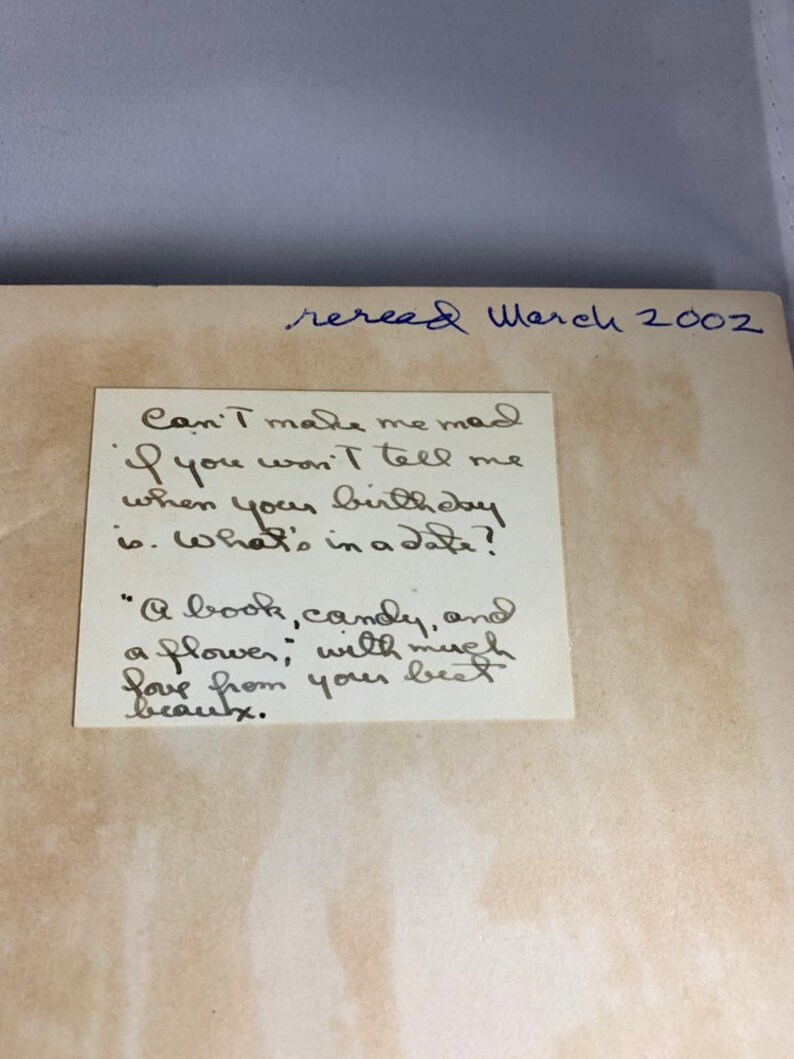 reread March 2002
Can't make me mad
if you won't tell me
when your birthday
is. What's in a date?
"A book, candy, and
a flower," with much
love from your best
beaux.